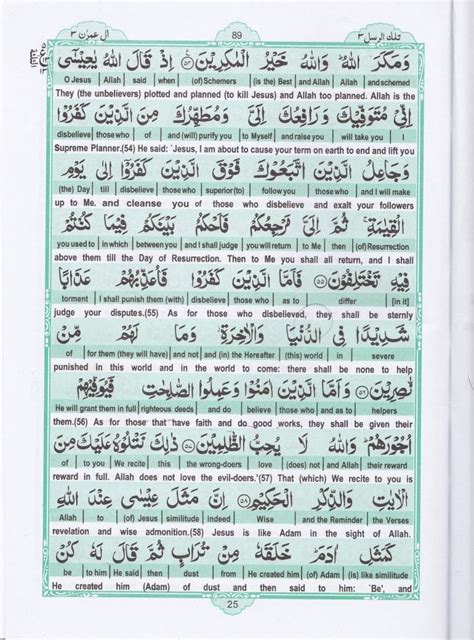 اٰل عمرٰن ٣
89
تلك الرسل ٣
وَمَكَرَ اللّٰهُ ؕ وَاللّٰهُ خَيْرُ الْمٰكِرِيْنَ ﴿٥٤﴾ اِذْ قَالَ اللّٰهُ يٰعِيْسٰۤى
O Jesus | Allah | said | when | (of) Schemers | (is the) Best | and Allah | Allah | and schemed
They (the unbelievers) plotted and planned (to kill Jesus) and Allah too planned. Allah is the
اِنِّىْ مُتَوَفِّيْكَ وَرَافِعُكَ اِلَىَّ وَمُطَهِّرُكَ مِنَ الَّذِيْنَ كَفَرُوْا
disbelieve | those who | of | and (will) purify you | to Myself | and raise you | will take you | I
Supreme Planner.(54) He said: `Jesus, I am about to cause your term on earth to end and lift you
وَجَاعِلُ الَّذِيْنَ اتَّبَعُوْكَ فَوْقَ الَّذِيْنَ كَفَرُوْۤا اِلٰى يَوْمِ
(the) Day | till | disbelieve | those who | superior(to) | follow you | those who | and I will make
up to Me. and cleanse you of those who disbelieve and exalt your followers
الْقِيٰمَةِ ۚ ثُمَّ اِلَىَّ مَرْجِعُكُمْ فَاَحْكُمُ بَيْنَكُمْ فِيْمَا كُنْتُمْ
you used to | in which | between you | and I shall judge | you will return | to Me | then | (of) Resurrection
above them till the Day of Resurrection. Then to Me you shall all return, and I shall
فِيْهِ تَخْتَلِفُوْنَ ﴿٥٥﴾ فَاَمَّا الَّذِيْنَ كَفَرُوْا فَاُعَذِّبُهُمْ عَذَابًا
torment | I shall punish them (with) | disbelieve | those who | as to | differ | [in it]
judge your disputes.(55) As for those who disbelieved, they shall be sternly
شَدِيْدًا فِى الدُّنْيَا وَالْاٰخِرَةِ ۫ وَمَا لَهُمْ مِّنْ
of | for them (they will have) | and not | and (in the) Hereafter | (this) world | in | severe
punished in this world and in the world to come: there shall be none to help
نّٰصِرِيْنَ ﴿٥٦﴾ وَاَمَّا الَّذِيْنَ اٰمَنُوْا وَعَمِلُوا الصّٰلِحٰتِ فَيُوَفِّيْهِمْ
He will grant them in full | righteous deeds | and do | believe | those who | and as to | helpers
them.(56) As for those that have faith and do good works, they shall be given their
اُجُوْرَهُمْ ؕ وَاللّٰهُ لَا يُحِبُّ الظّٰلِمِيْنَ ﴿٥٧﴾ ذٰلِكَ نَتْلُوْهُ عَلَيْكَ مِنَ
of | to you | We recite | this | the wrong-doers | love | (does) not | and Allah | their reward
reward in full. Allah does not love the evil-doers.'(57) That (which) We recite to you is
الْاٰيٰتِ وَالذِّكْرِ الْحَكِيْمِ ﴿٥٨﴾ اِنَّ مَثَلَ عِيْسٰى عِنْدَ اللّٰهِ
Allah | to | (of) Jesus | similitude | indeed | Wise | and the Reminder | the Verses
revelation and wise admonition.(58) Jesus is like Adam in the sight of Allah.
كَمَثَلِ اٰدَمَ ؕ خَلَقَهٗ مِنْ تُرَابٍ ثُمَّ قَالَ لَهٗ كُنْ
be | to him | He said | then | dust | from | He created him | (of) Adam | (is) like similitude
He created him (Adam) of dust and then said to him: `Be', and
25